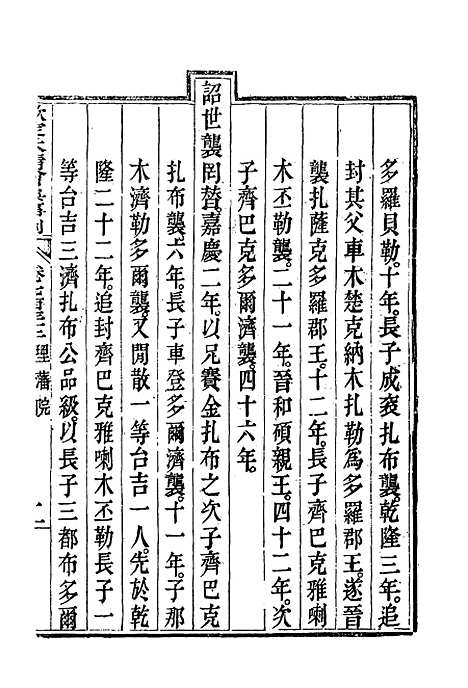 多羅貝勒。十年。長子成袞扎布襲。乾隆三年。追
封其父車木楚克納木扎勒爲多羅郡王。遂晉
襲扎薩克多羅郡王。十二年。長子齊巴克雅喇
木丕勒襲。二十一年。晉和碩親王。四十二年。次
子齊巴克多爾濟襲。四十六年。
詔世襲罔替。嘉慶二年。以兄賽金扎布之次子齊巴克
扎布襲。六年。長子車登多爾濟襲。十一年。子那
木濟勒多爾襲。又閒散一等台吉一人。先於乾
隆二十二年。追封齊巴克雅喇木丕勒長子一
等台吉三濟扎布公品級。以長子三都布多爾
理藩院